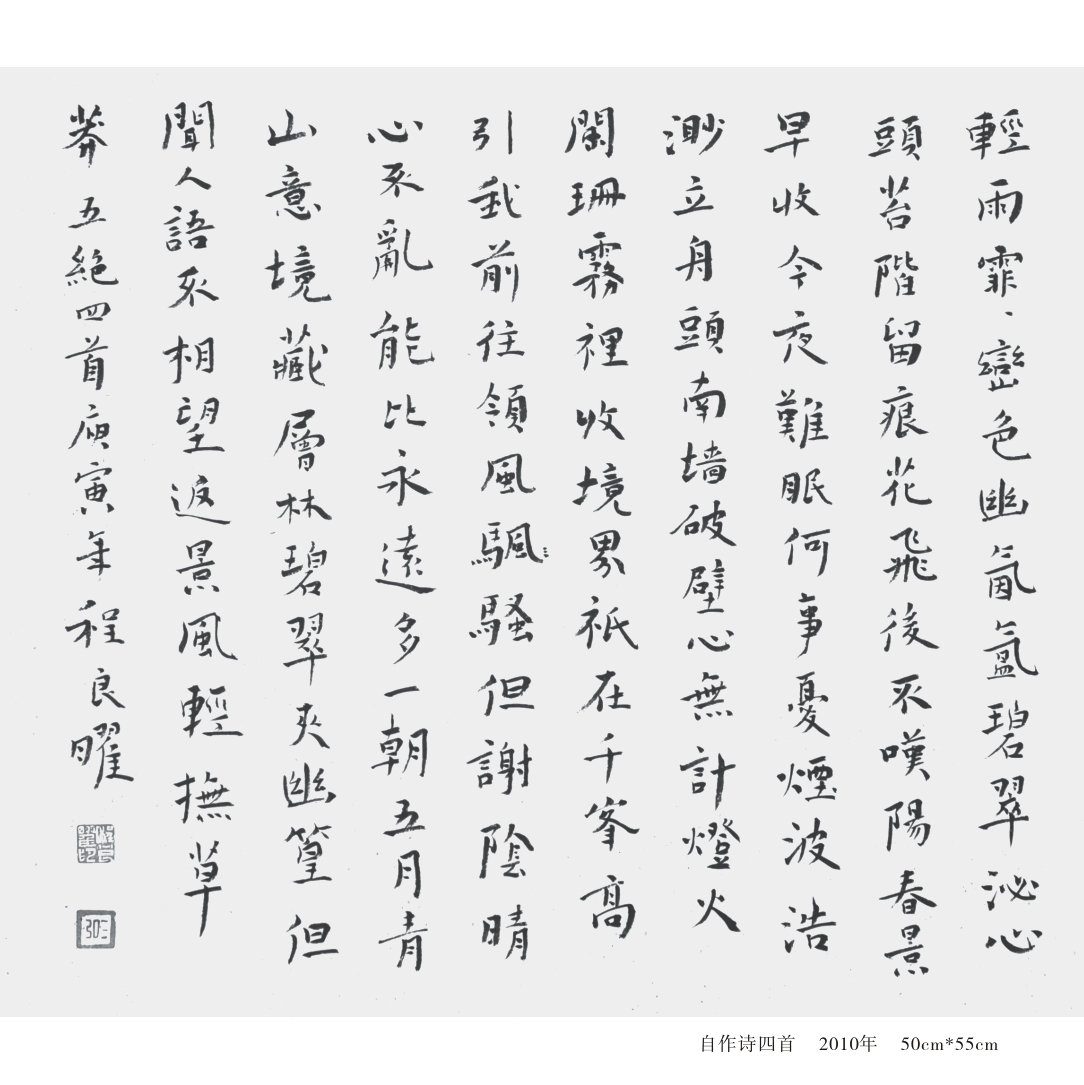 輕雨霏、巒色幽氤氳碧翠沁心
頭苔階留痕花飛後不嘆陽春景
早收今夜難眠何事憂煙波浩
渺立舟頭南墙破壁心無計燈火
闌珊霧裡收境界祇在千峯高
引我前往領風颯騷但謝陰晴
心不亂能比永遠多一朝五月青
山意境藏層林碧翠夾幽篁但
聞人語不相望返景風輕撫草
莽 五絕四首庚寅年程良曜
自作诗四首 2010年 50cm*55cm